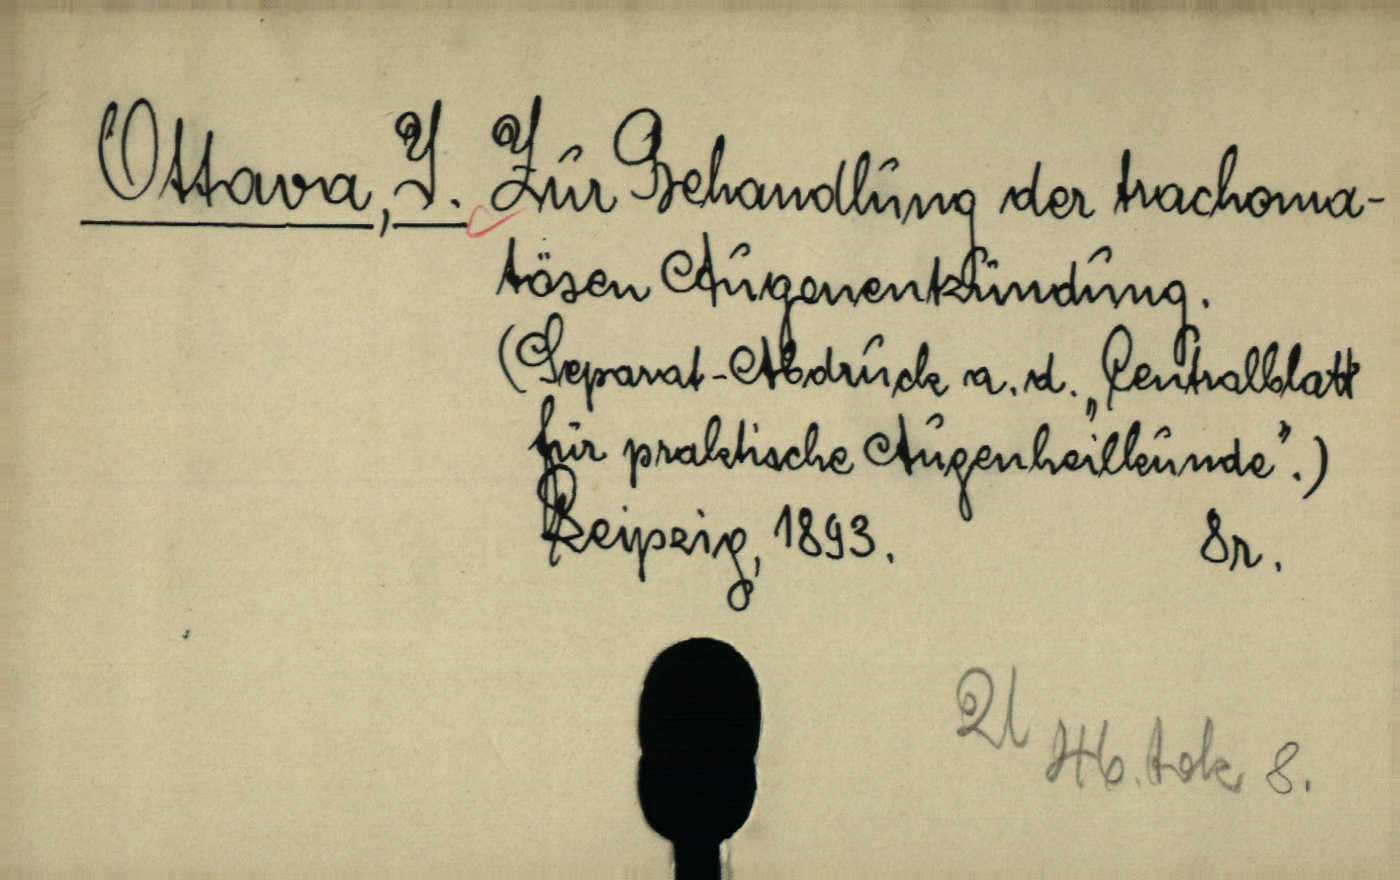 Ottava, I. Zur Behandlung der trachoma-
tösen Augenentzündung.
(Separat-Abdruck a. d. „Centralblatt
für praktische Augenheilkunde".)
Leipzig, 1893. 8r.
8.